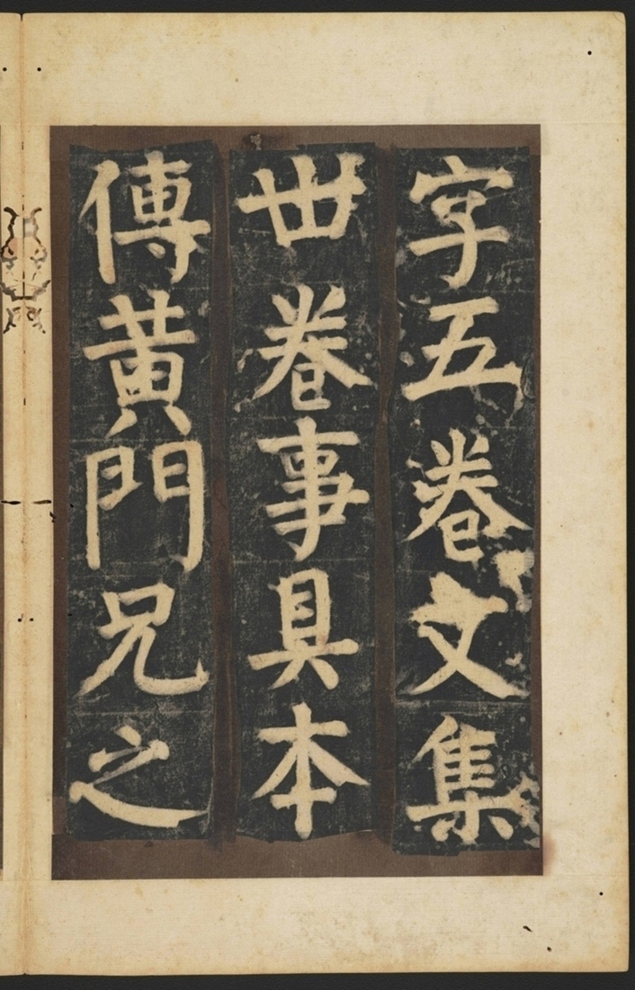 字五卷文集
丗卷事具本
傳黃門兄之